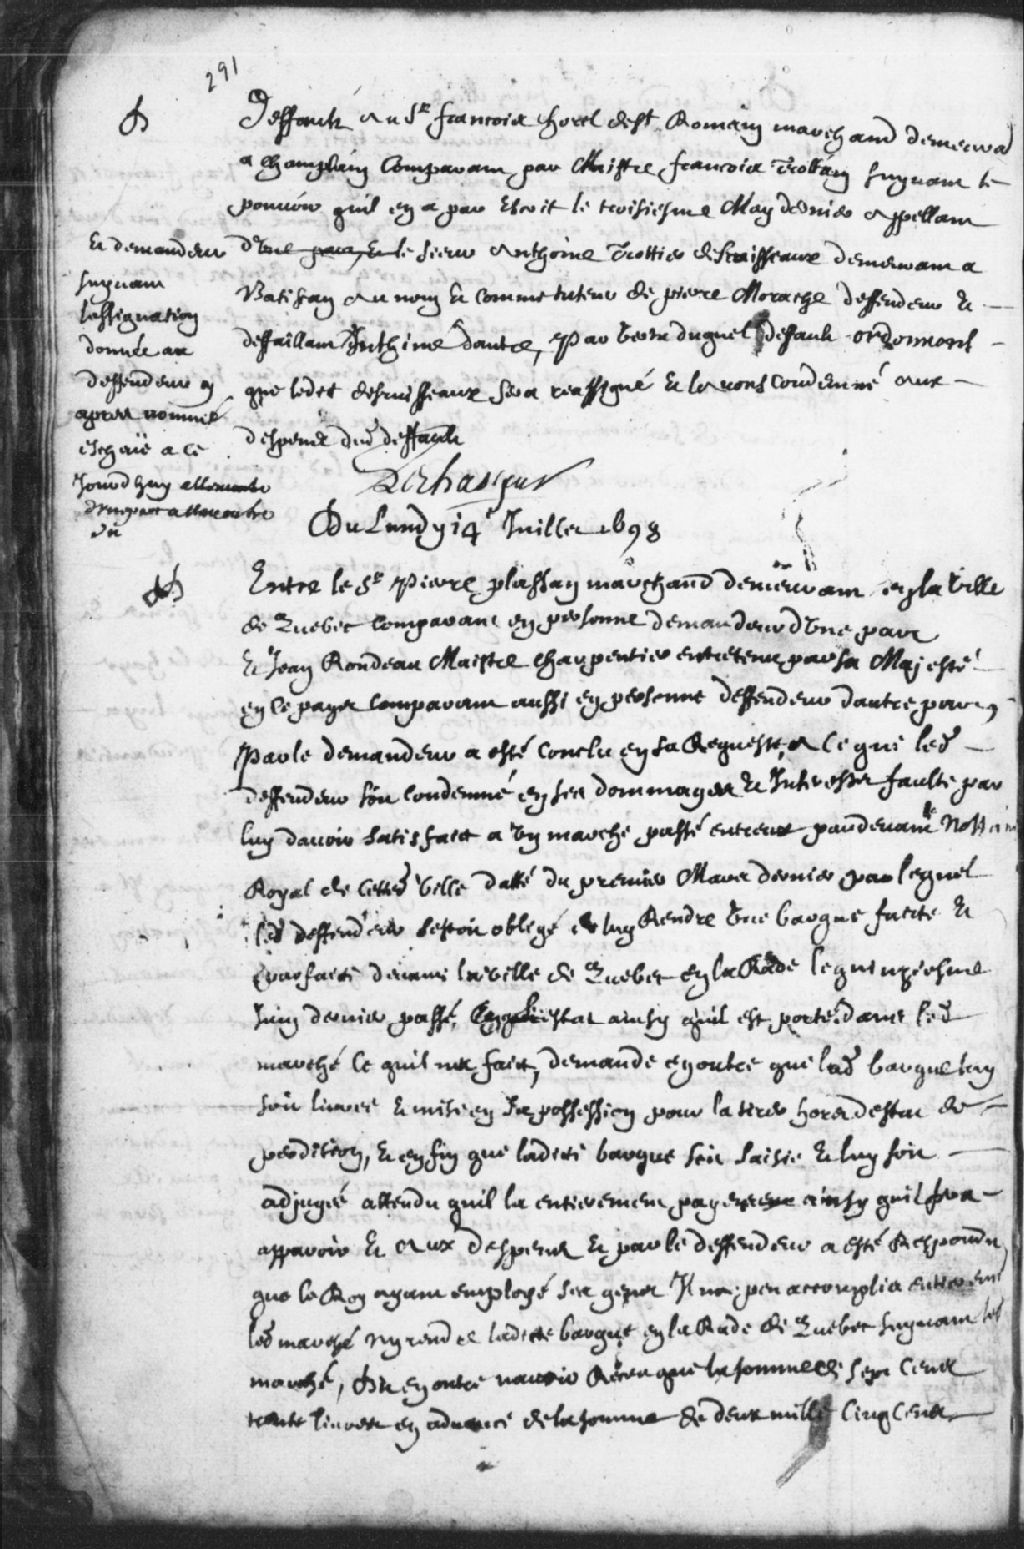 291
Deffault au Sr francois horel de St Romain marchand demeurant
a Champlain Comparant par Maistre francois Trottain suyvant le
pouvoir quil en a par Escrit le troisiesme May dernier appellant
d'une part, Et le sieur Anthoine Trottier desruisseaux demeurant a
Batiscan au nom Et comme tuteur de pierre Morache deffendeur Et
deffaillant Inthimé dautre, Par Veu duquel deffault ordonnons
que ledit desruisseaux sera reassigné Et lavons condemné aux
despens dud deffault
Et demandeur
suyvant
lassignation
donnée au
deffendeur cy
apres nommé
escheüe a ce
Jourdhuy
Du Lundy 14e Juillet 1698
Entre le Sr Pierre plassan marchand demeurant en la Ville
de Quebec comparant en personne demandeur d'Une part
Et Jean Rondeau Maistre charpentier entretenu par sa Majesté
en ce payes comparant aussi en personne deffendeur dautre part,
Par le demandeur a esté conclu en sa Requeste, a ce que led
deffendeur soit condemné en ses dommages Et Interests faulte par
luy davoir satisfaict a Un marché passé entreux pardevant Nottaire
Royal de cetted Ville datté du premier Mars dernier par lequel
led deffendeur sestoit obligé de luy Rendre Une barque faicte Et
parfaicte devant la Ville de Quebec en la Rade le quinziesme
Juin dernier passé, estat ainsy quil est porté dans led
marché ce quil na faict, demande en outre que lad barque luy
soit livrée Et mise en sa possession pour la tirer hors destat de
perdition, Et enfin que ladite barque soit saisie Et luy soit
adjugée attendu quil la entierement payée ainsy quil fera
apparoir Et aux despens Et par le deffendeur a esté Respondu
que le Roy ayant employé ses gens Il na peu accomplir entierement
led marché ny rendre ladicte barque en la Rade de Quebec suyvant led
marché, Et en outre navoir Receu que la somme de sept cens
trente livres en advance de la somme de deux mille Cinq Cens